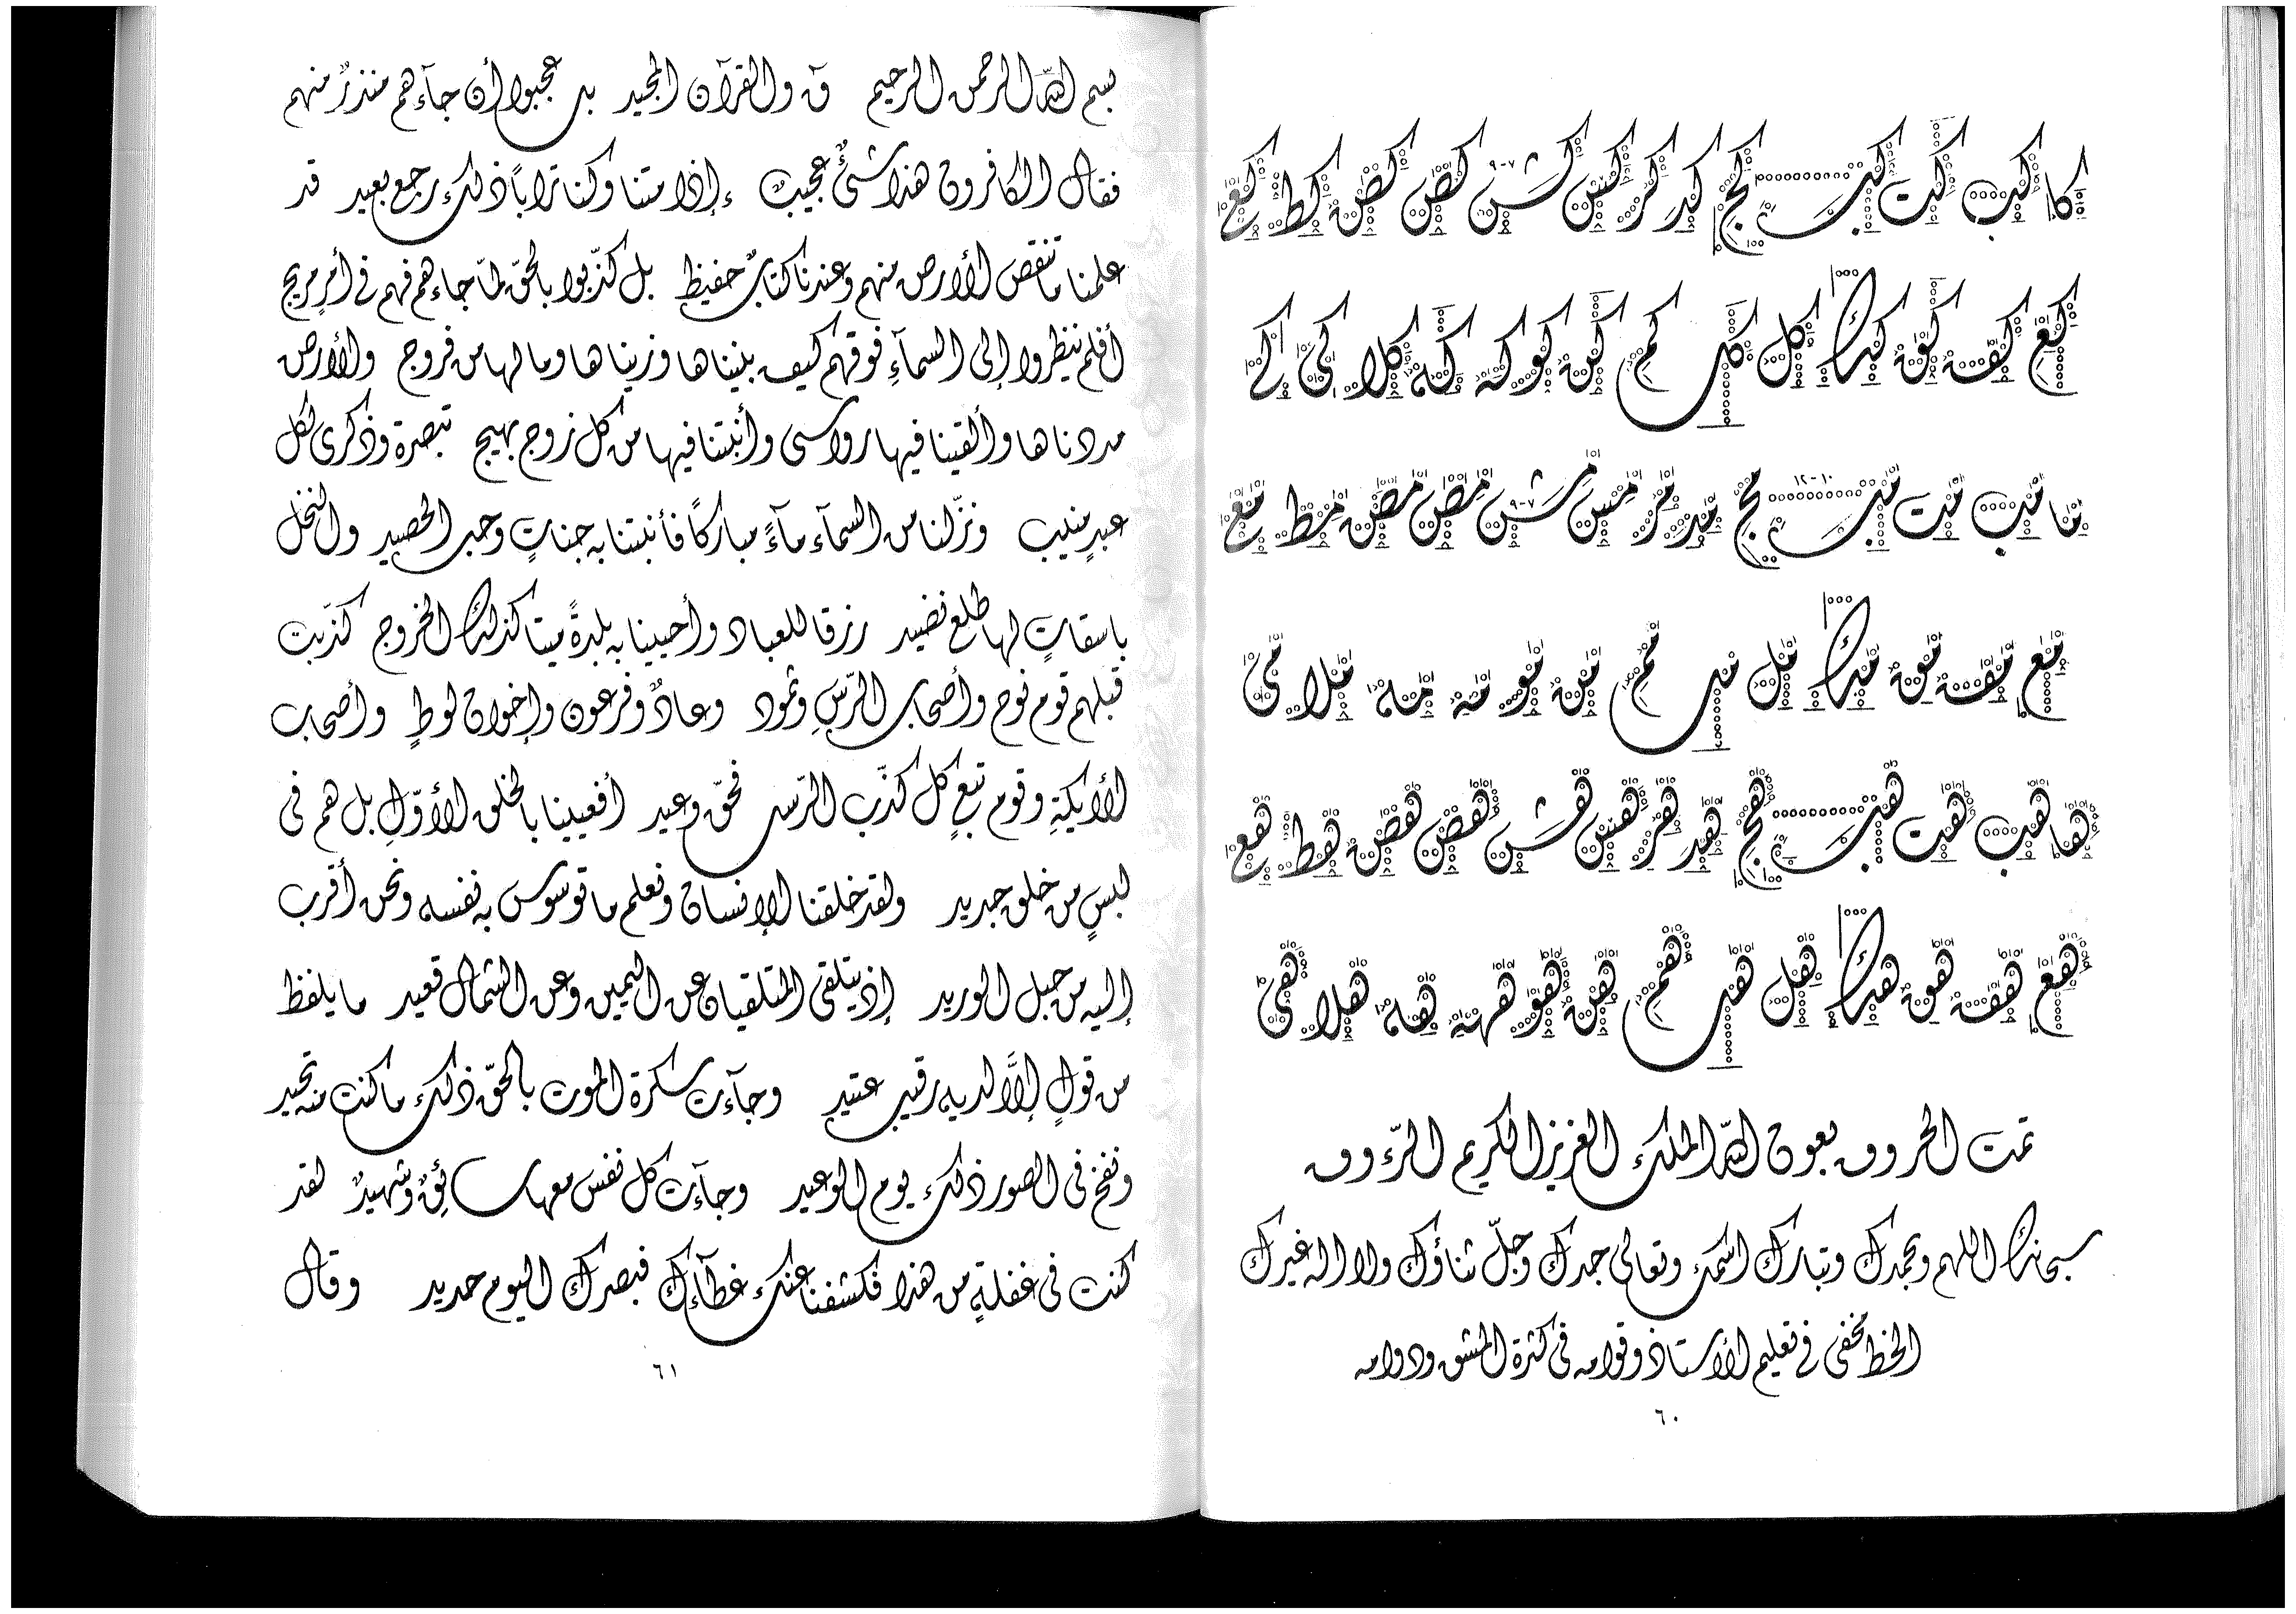 كا كب كت كبـ كج كد كر كس كش كص كض كط كع
كع كف كق كك كل كلـ كم كن كو كه كة كلا كى كے
ما مب مت مبـ مج مد مر مس مش مص مض مط مع
مع مف مق مك مل ملـ مم من مو مه مة ملا مى
ها هب هت هبـ هج هد هر هس هش هص هض هط هع
هع هف هق هك هل هلـ هم هن هو هه هة هلا هى
تمت الحروف بعون الله الملك العزيز الكريم الرّءوف
سبحانك اللهم وبحمدك وتبارك اسمك وتعالى جدك وجلّ ثناؤك ولا اله غيرك
الخط مخفى في تعليم الأستاذ وقوامه في كثرة المشق ودوامه
٦٠
بسم الله الرحمن الرحيم قۤ والقرآن المجيد بل عجبوا أن جآءهم منذرٌ منهم
فقال الكافرون هذا شئٌ عجيبٌ ءإذا متنا وكنا تراباً ذلك رجع بعيد قد
علمنا ما تنقص الأرض منهم وعندنا كتابٌ حفيظ بل كذّبوا بالحق لمّا جاءهم فهم في أمرٍ مريج
أفلم ينظروا إلى السمآءِ فوقهم كيف بنيناها وزيناها وما لها من فروج والأرض
مددناها وألقينا فيها رواسى وأنبتنا فيها من كل زوج بهيج تبصرة وذكرى لكل
عبدٍ منيب ونزّلنا من السمآء مآءً مباركاً فأنبتنا به جناتٍ وحب الحصيد والنخل
باسقاتٍ لها طلع نضيد رزقا للعباد وأحيينا به بلدةً ميتا كذلك الخروج كذّبت
قبلهم قوم نوح وأصحاب الرّسِ وثمود وعادٌ وفرعون وإخوان لوطٍ وأصحاب
الأيكةِ وقوم تبعٍ كل كذّب الرّسل فحقّ وعيد أفعيينا بالخلق الأوّلِ بل هم فى
لبسٍ من خلق جديد ولقد خلقنا الإنسان ونعلم ما توسوس به نفسه ونحن أقرب
إليه من حبل الوريد إذ يتلقى المتلقيان عن اليمين وعن الشمال قعيد ما يلفظ
من قولٍ إلاَّ لديه رقيب عتيد وجآءت سكرة الموت بالحقّ ذلك ما كنت منه تحيد
ونفخ فى الصور ذلك يوم الوعيد وجآءت كل نفس معها سائقٌ وشهيدٌ لقد
كنت فى غفلةٍ من هذا فكشفنا عنك غطآءك فبصرك اليوم حديد وقال
٦١